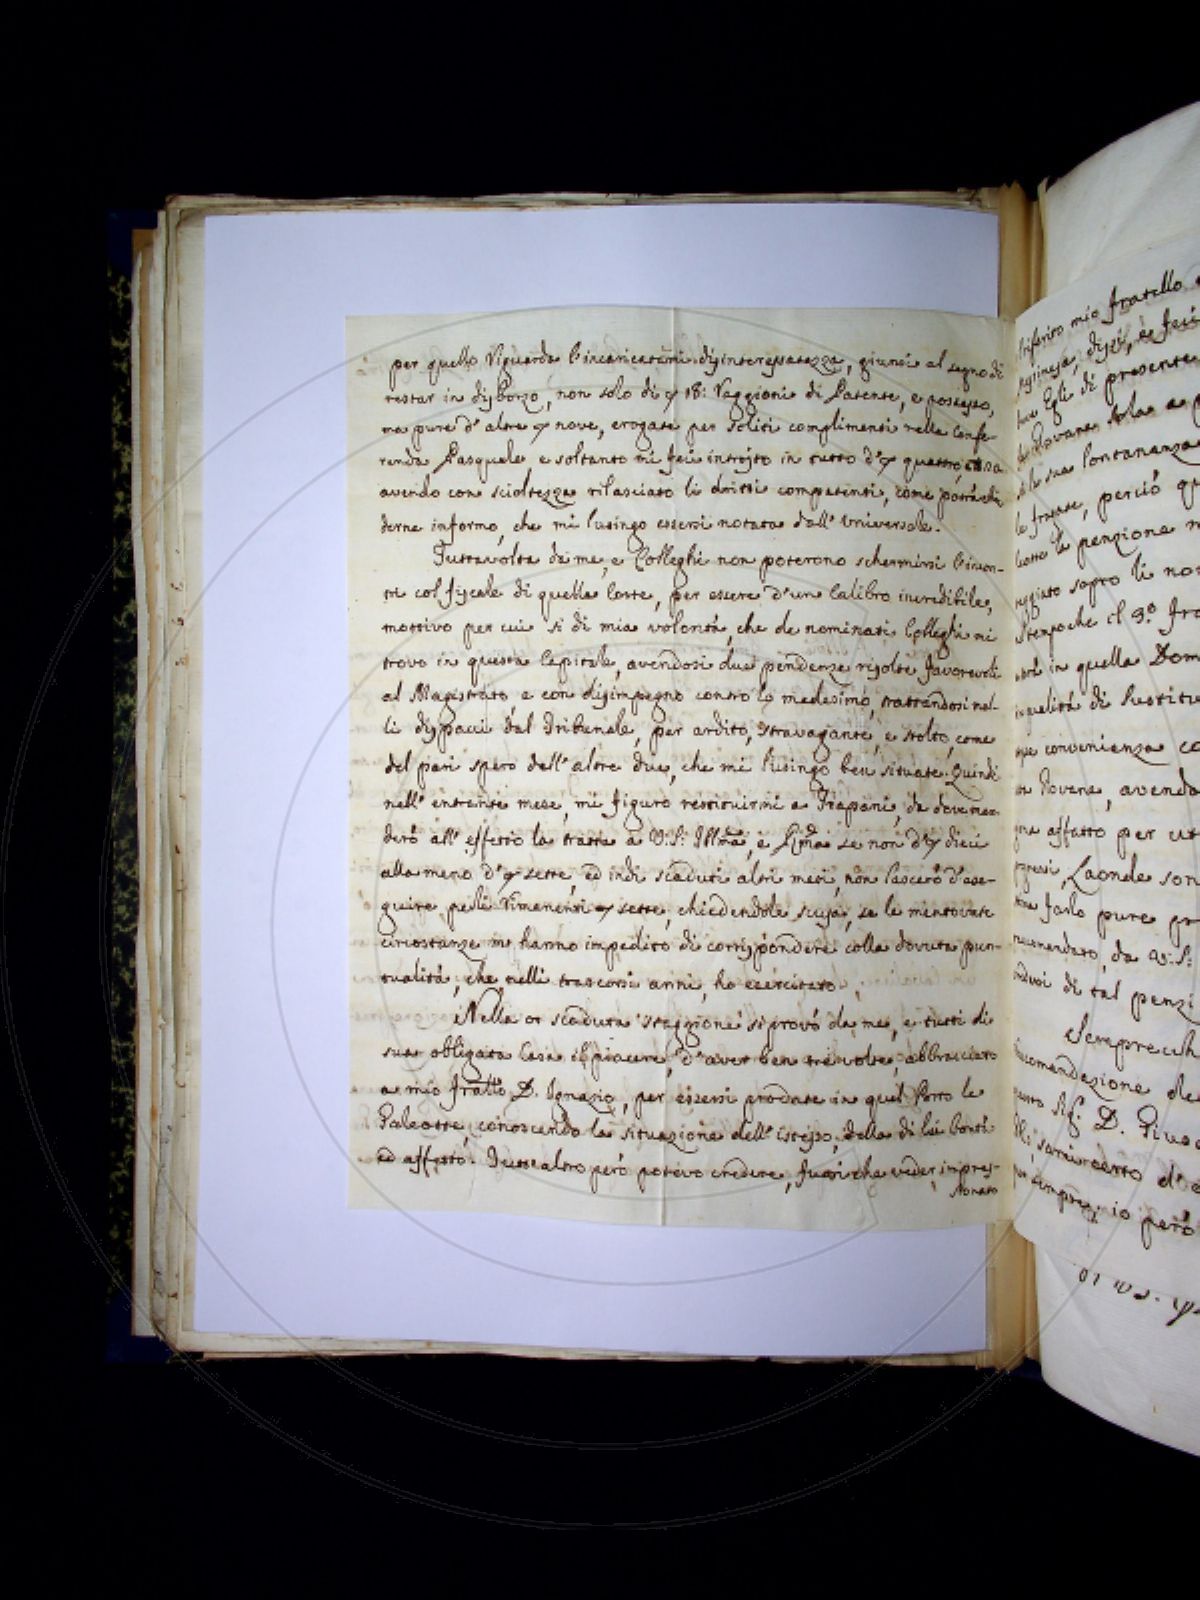 per quello riguarda l'incaricatami disinteressatezza, giunsi al segno di
restar in disborzo, non solo di 18: raggioni di Patente, e possesso,
ma pure d'altre nove, erogate per soliti complimenti nella confe-
renda Pasquale, e soltanto mi feci introjto in tutto d' quattro, cosa
avendo con scioltezza rilasciato li dritti competenti, come potrà chi
derne informo, che mi lusingo essersi notata dall'universale.
Tuttavolta da me, e Colleghi non poterono schermirsi l'incon-
tri col fiscale di quella Corte, per essere d'un calibro incredibile,
mottivo per cui si di mia volontà, che de nominati Colleghi mi
trovo in questa Capitale, avendosi due pendenze risolte favorevoli
al Magistrato, e con disimpegno contro lo medesimo, trattandosi nel-
li dispacci dal Tribunale, per ardito, stravagante, e stolto, come
del pari spero dell'altre due, che mi lusingo ben situate. Quindi
nell'entrante mese, mi figuro restituirmi a Trapani, da dove
derò all'effetto la tratta a V:S: Illma, e se non d' dieci
alla meno d' sette, ed indi scaduti altri mesi, non lascerò d'ese-
guire pelli rimanenti sette, chiedendole scusa, se le mentovate
circostanze m'hanno impedito di corrispondere colla dovuta pun-
tualità, che nelli trascorsi anni, ho esercitato.
Nella or scaduta staggione si provò da me, e tutti di
sua obligata Casa il piacere, d'aver ben tre volte, abbracciato
a mio fratto D. Ignazio, per essersi prodate in quel Porto le
Paleotte, conoscendo la situazione dell'istesso, della di lui bontà
ed affetto. Tutt'altro però potevo credere, fuorichè veder, impres-
sionato
riferito mio fratello
Egli di presente
la sua lontananza
le fregate, perciò
la penzione
sopro li
che il 3º
in quella Dom
qualità di Sustitu
convenienza
avendo
affatto per
Laonde son
farlo pure
da V:S:
di tal penzi
Semprecch
D.
d'
io però